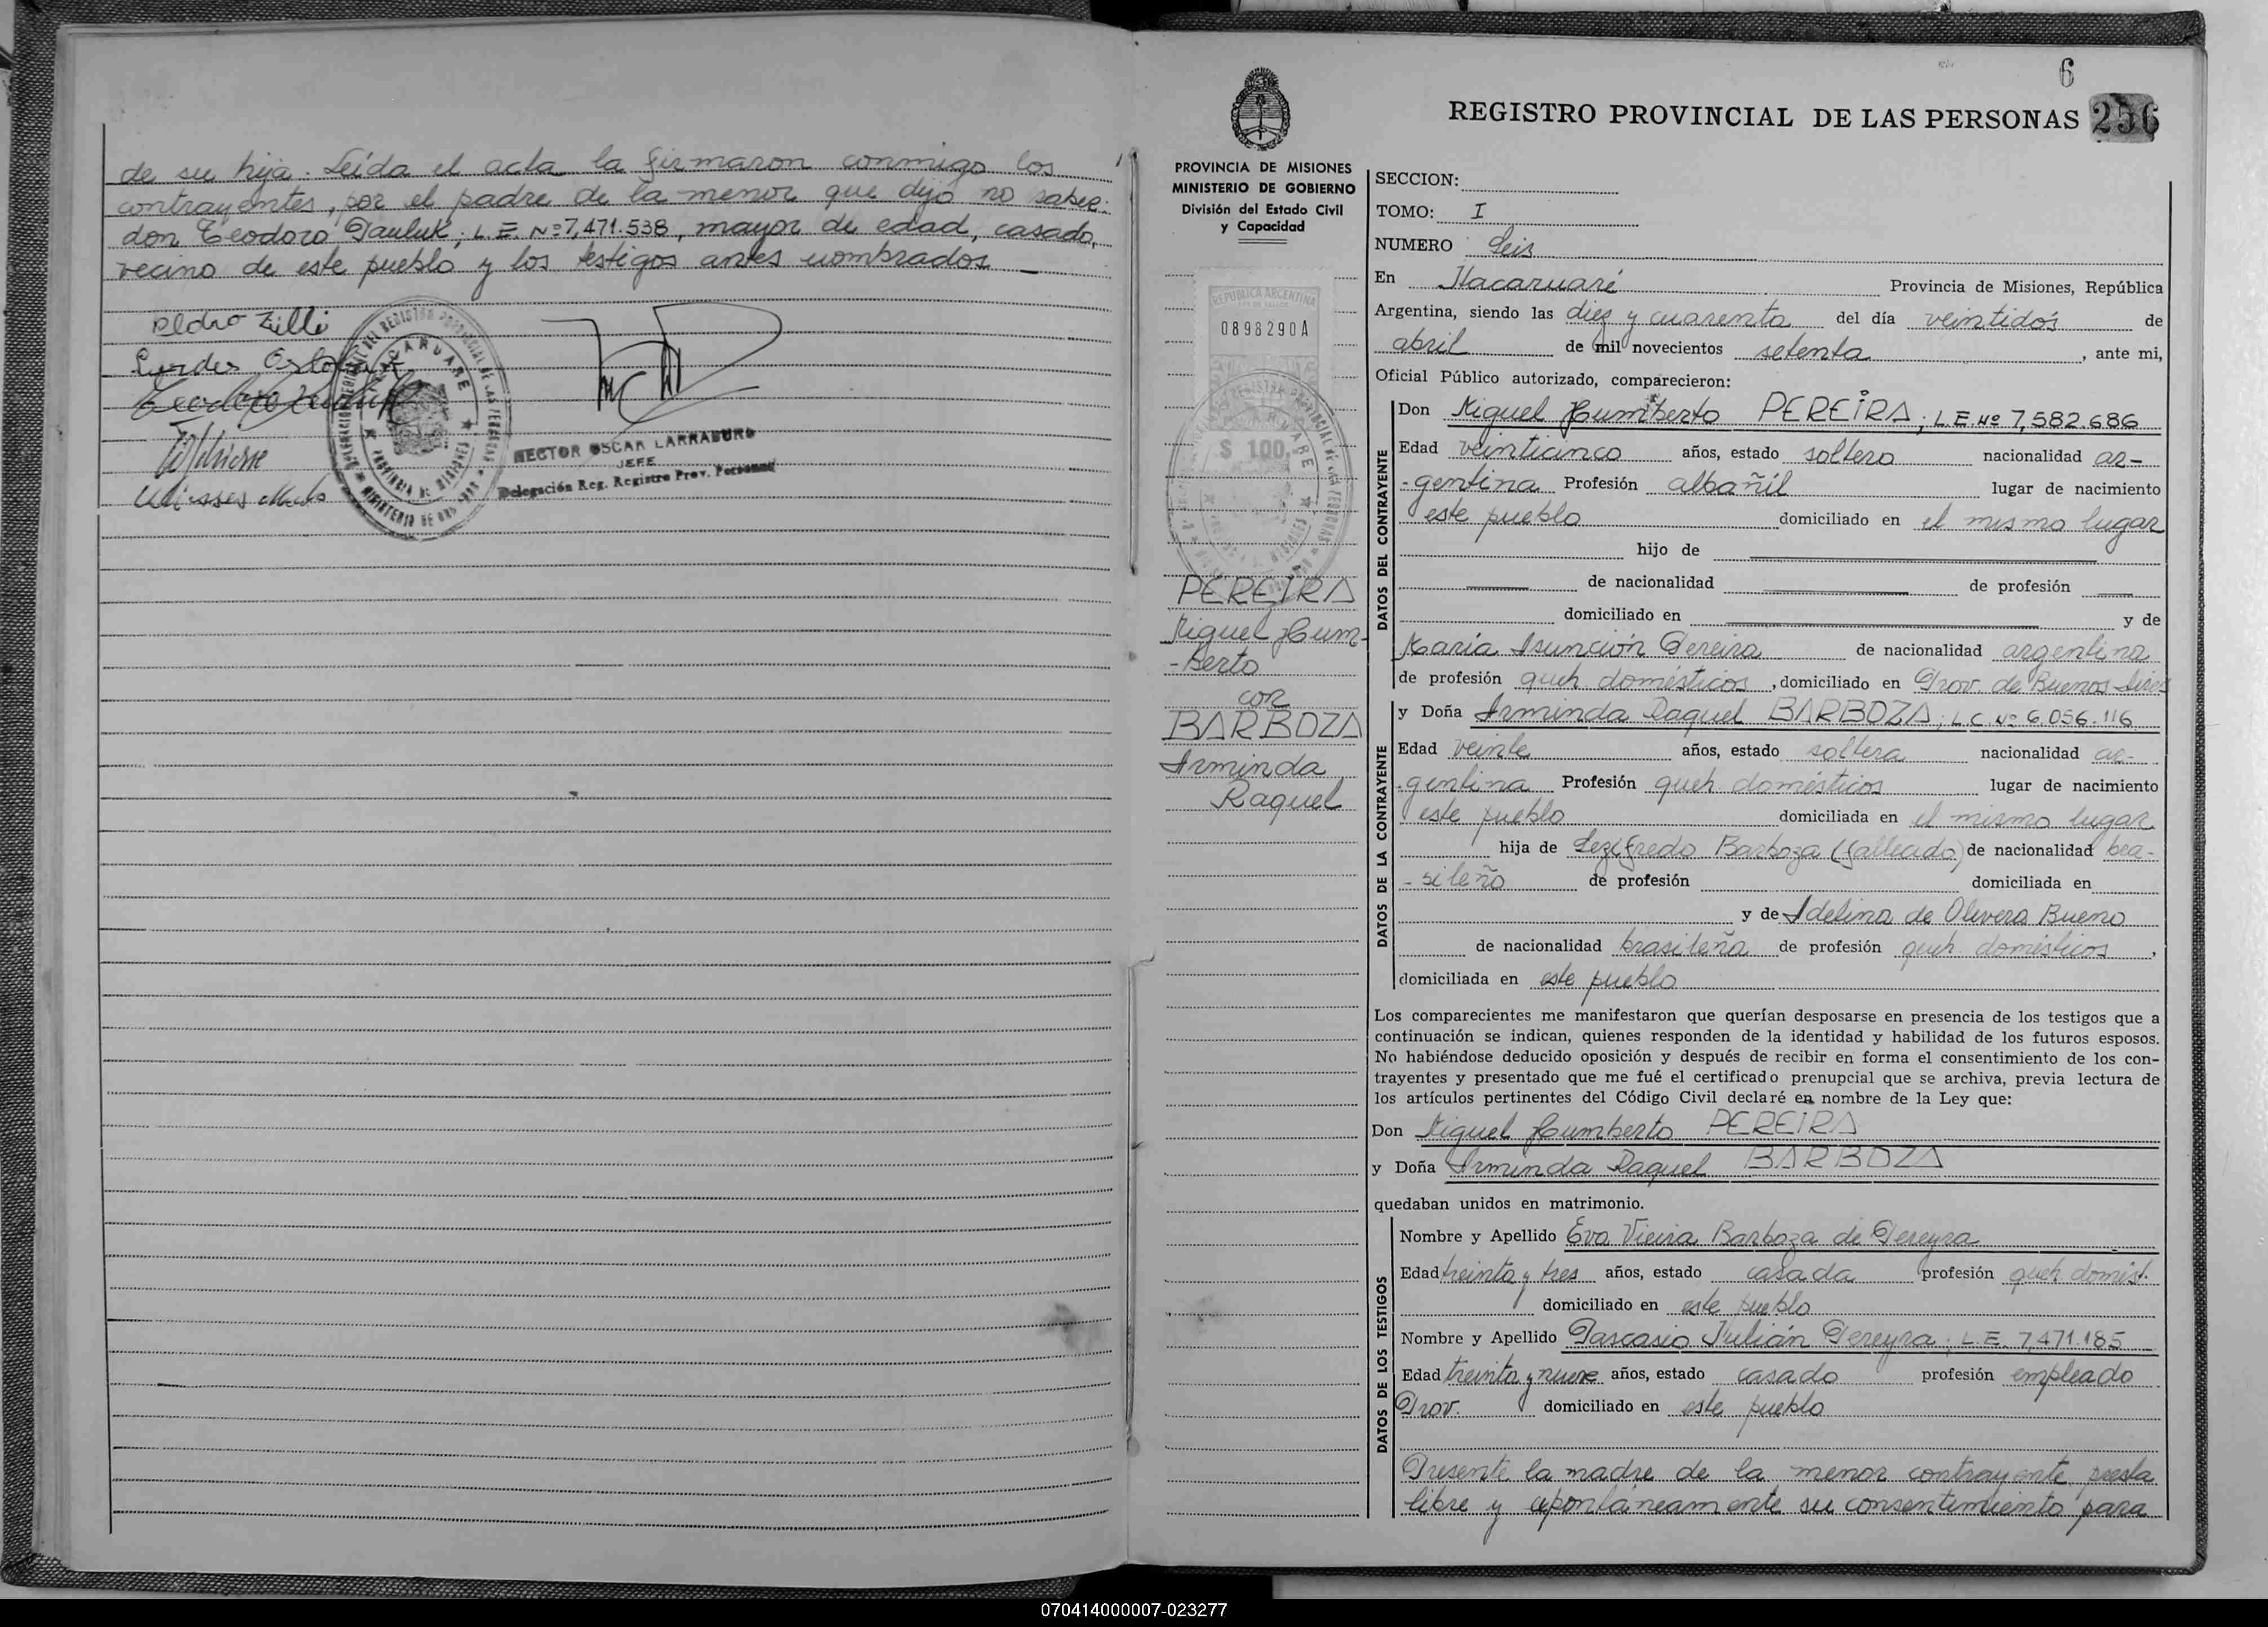 de su hija. Leída el acta la firmaron conmigo los
contrayentes, por el padre de la menor que dijo no saber:
don Teodoro Pauluk; L.E. Nº 7,471.538, mayor de edad, casado,
vecino de este pueblo y los testigos antes nombrados
Pedro Zilli
HECTOR OSCAR LARRABURO
JEFE
Delegación Reg. Registro Prov. Personas
6
REGISTRO PROVINCIAL DE LAS PERSONAS 256
PROVINCIA DE MISIONES
MINISTERIO DE GOBIERNO
División del Estado Civil
y Capacidad
REPUBLICA ARGENTINA
0898290A
$ 100
PEREIRA
Miguel Hum-
-berto
con
BARBOZA
Arminda
Raquel
SECCION:
TOMO: I
NUMERO Seis
En Itacaruaré Provincia de Misiones, República
Argentina, siendo las diez y cuarenta del día veintidós de
abril de mil novecientos setenta, ante mi,
Oficial Público autorizado, comparecieron:
DATOS DEL CONTRAYENTE
Don Miguel Humberto PEREIRA; L.E. Nº 7,582.686
Edad veinticinco años, estado soltero nacionalidad ar-
-gentina Profesión albañil lugar de nacimiento
este pueblo domiciliado en el mismo lugar
hijo de
de nacionalidad de profesión
domiciliado en y de
María Asunción Pereira de nacionalidad argentina
de profesión queh. domésticos, domiciliado en Prov. de Buenos Aires
DATOS DE LA CONTRAYENTE
y Doña Arminda Raquel BARBOZA; L.C. Nº 6.056.116
Edad veinte años, estado soltera nacionalidad ar-
-gentina Profesión queh. domésticos lugar de nacimiento
este pueblo domiciliada en el mismo lugar
hija de Sezifredo Barboza (fallecido) de nacionalidad bra-
-sileño de profesión domiciliada en
y de Adelina de Olivera Bueno
de nacionalidad brasileña de profesión queh. domésticos,
domiciliada en este pueblo
Los comparecientes me manifestaron que querían desposarse en presencia de los testigos que a
continuación se indican, quienes responden de la identidad y habilidad de los futuros esposos.
No habiéndose deducido oposición y después de recibir en forma el consentimiento de los con-
trayentes y presentado que me fué el certificado prenupcial que se archiva, previa lectura de
los artículos pertinentes del Código Civil declaré en nombre de la Ley que:
Don Miguel Humberto PEREIRA
y Doña Arminda Raquel BARBOZA
quedaban unidos en matrimonio.
DATOS DE LOS TESTIGOS
Nombre y Apellido Eva Vieira Barboza de Pereyra
Edad treinta y tres años, estado casada profesión queh. domést.
domiciliado en este pueblo
Nombre y Apellido Pascasio Julián Pereyra; L.E. 7,471.185
Edad treinta y nueve años, estado casado profesión empleado
Prov. domiciliado en este pueblo
Presente la madre de la menor contrayente presta
libre y espontáneamente su consentimiento para
070414000007-023277